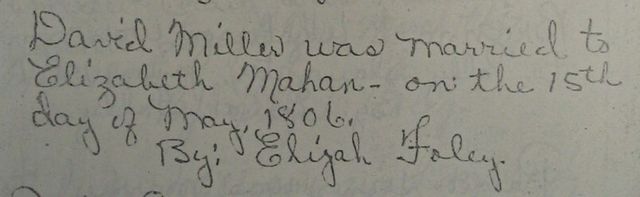 David Miller was married to
Elizabeth Mahan - on the 15th
day of May, 1806.
By: Elijah Foley.